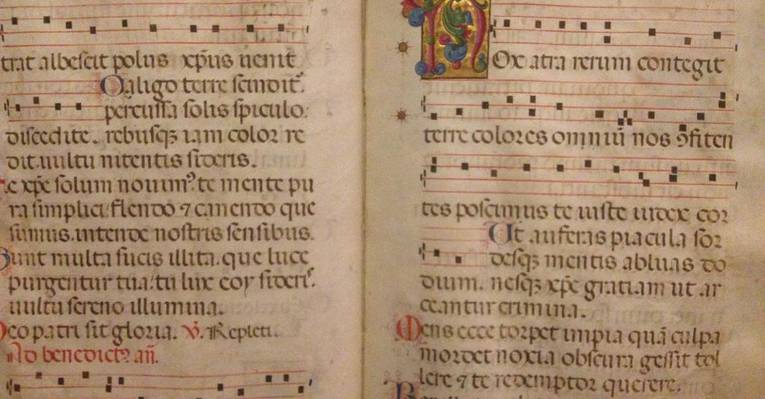 trat albescit polus xp̄us uenit
Caligo terre scindit᷑.
percussa solis spiculo.
discedite. rebusqꝫ iam color re
dit. uultu nitentis sideris.
Te xp̄e solum nouim᷒. te mente pu
ra simplici. flendo ⁊ canendo que
sumus. intende nostris sensibus.
Sunt multa fucis illita. que luce
purgentur tua. tu lux eoy sideri᷒.
uultu sereno illumina.
Deo patri sit gloria. ℣. Repleti.
Ad benedict᷒ an̄.
Nox atra rerum contegit
terre colores omniū nos ꝯfiten
tes poscimus te iuste iudex cor
Ut auferas piacula sor
desqꝫ mentis abluas do
dium. nesqꝫ xp̄e gratiam ut ar
ceantur crimina.
Mens ecce torpet impia quā culpa
mordet noxia obscura gessit tol
lere ⁊ te redemptor querere.